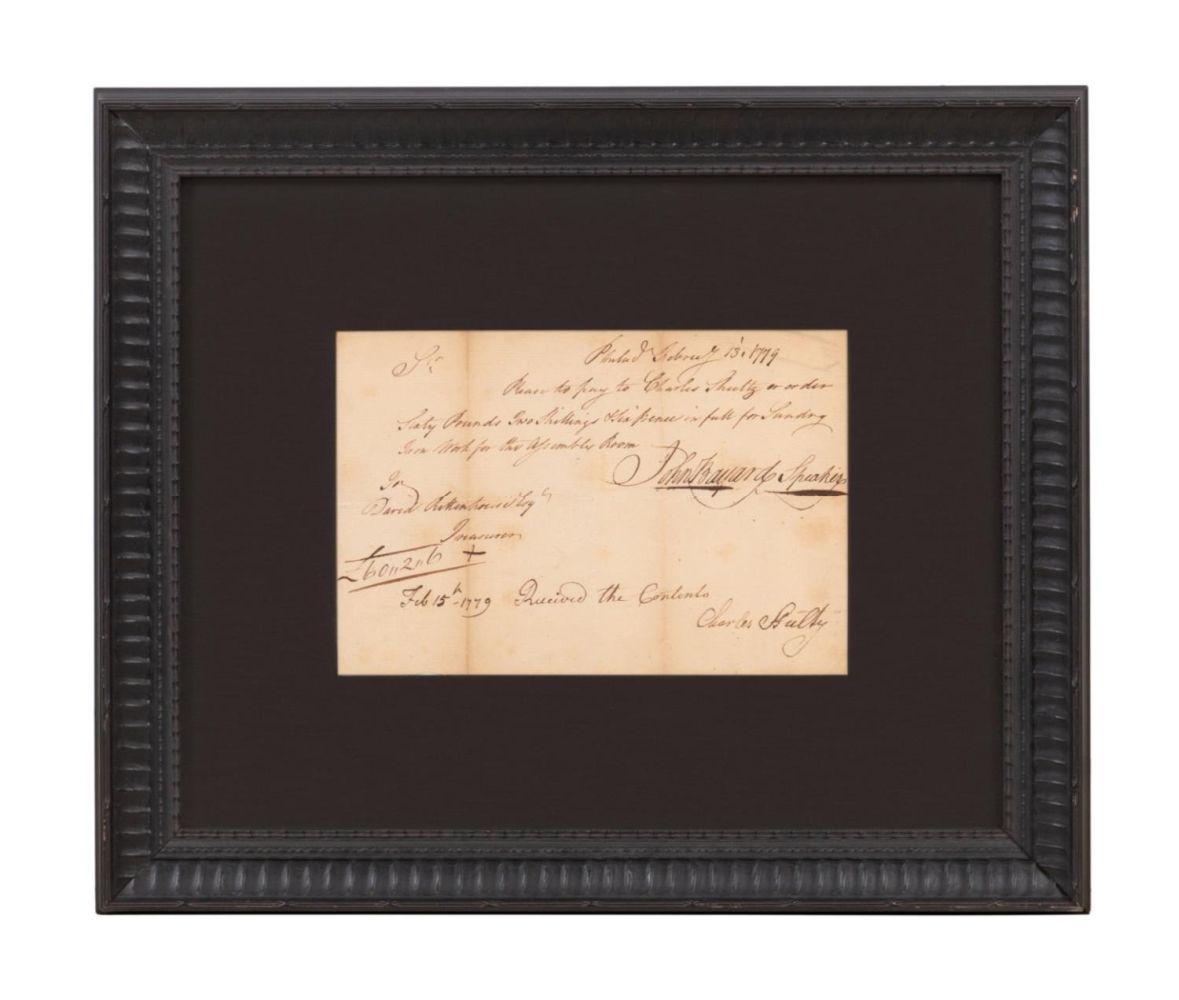 Sr
Philada Febru:y 13, 1779
Please to pay to Charles Shultz or order
Sixty Pounds Two Shillings & Six Pence in full for Sundry
Iron Work for the Assembly Room
John Bayard Speaker
To
David Rittenhouse Esqr
Treasurer
£60 〃 2 〃 6
Feb 15th - 1779 Received the Contents
Charles Shultz